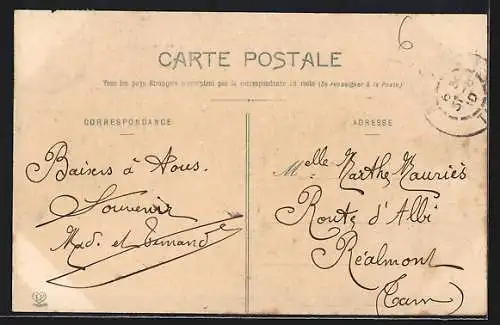 6
CARTE POSTALE
Tous les pays étrangers n'acceptent pas la correspondance au recto (Se renseigner à la Poste)
CORRESPONDANCE
ADRESSE
Baisers à Vous.
Souvenir
Mad. et Armand
Melle Marthe Mauriès
Route d'Albi
Réalmont
(Tarn)